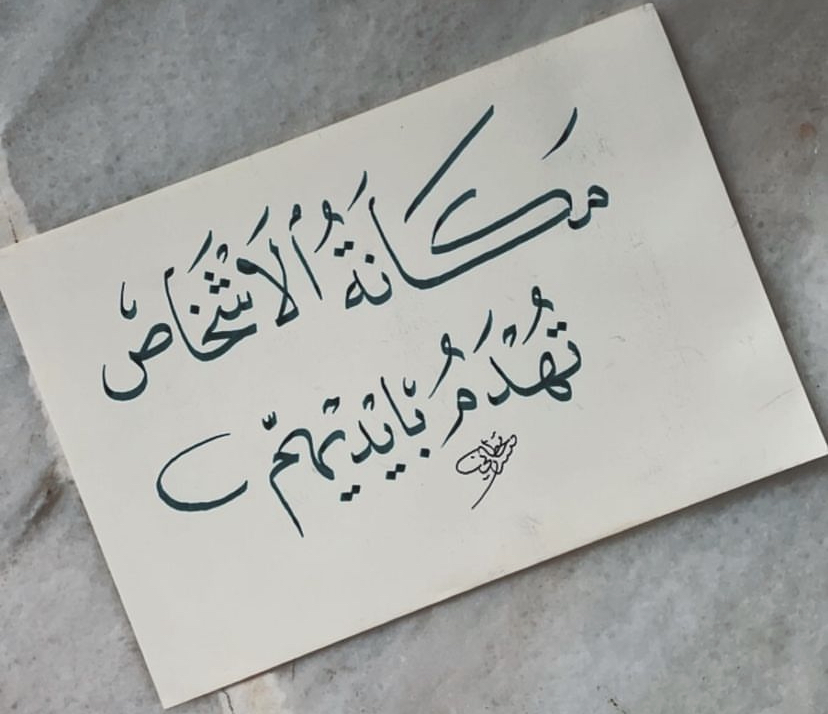 مَكَانَةُ الْاَشْخَاصْ
تُهْدَمُ بِايْدِيْهِمّ